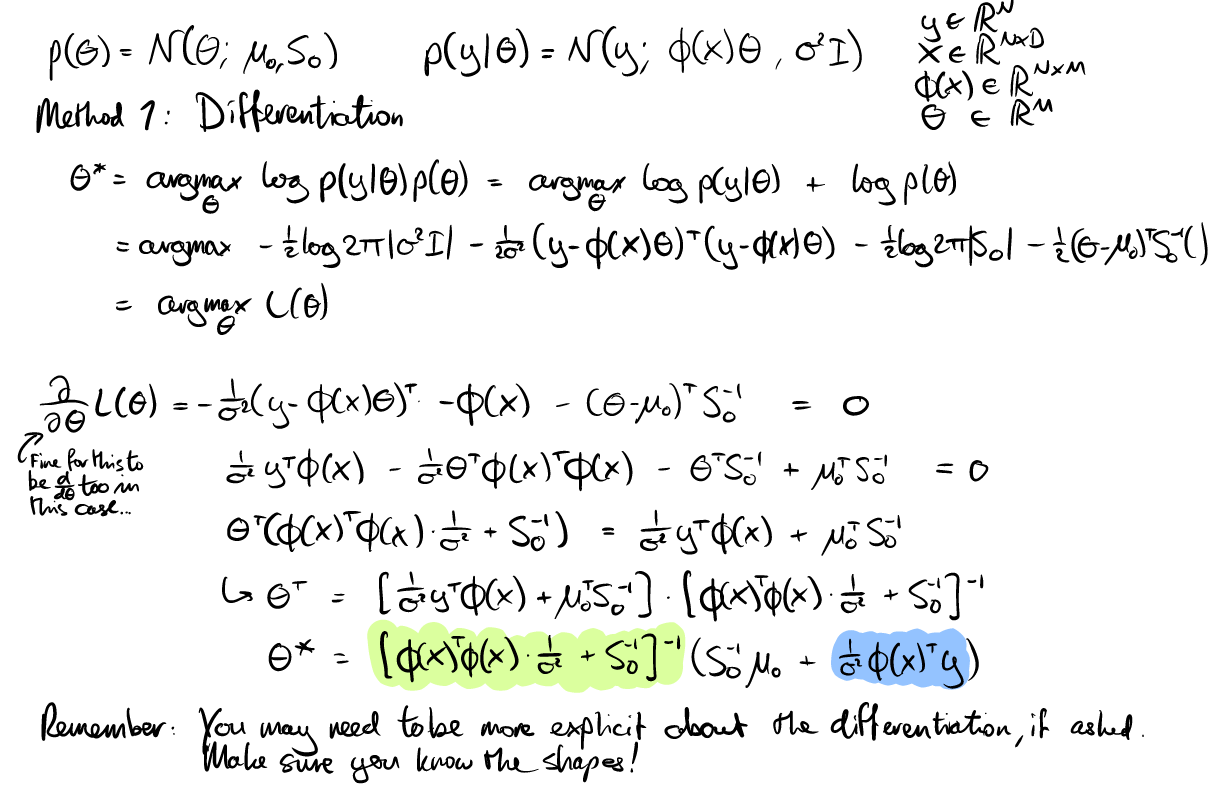 p(θ) = N(θ; μ₀, S₀)    p(y|θ) = N(y; ϕ(x)θ, σ²I)
y ∈ ℝᴺ
X ∈ ℝᴺˣᴰ
ϕ(x) ∈ ℝᴺˣᴹ
θ ∈ ℝᴹ
Method 1: Differentiation
θ* = argmax_θ log p(y|θ)p(θ) = argmax_θ log p(y|θ) + log p(θ)
= argmax - ½log 2π|σ²I| - 1/(2σ²) (y-ϕ(x)θ)ᵀ(y-ϕ(x)θ) - ½log 2π|S₀| - ½(θ-μ₀)ᵀS₀⁻¹()
= argmax_θ L(θ)
∂/∂θ L(θ) = - 1/σ² (y-ϕ(x)θ)ᵀ · -ϕ(x) - (θ-μ₀)ᵀ S₀⁻¹ = 0
Fine for this to
be d/dθ too in
this case...
1/σ² yᵀϕ(x) - 1/σ² θᵀϕ(x)ᵀϕ(x) - θᵀS₀⁻¹ + μ₀ᵀS₀⁻¹ = 0
θᵀ(ϕ(x)ᵀϕ(x) · 1/σ² + S₀⁻¹) = 1/σ² yᵀϕ(x) + μ₀ᵀS₀⁻¹
↳ θᵀ = [1/σ² yᵀϕ(x) + μ₀ᵀS₀⁻¹] · [ϕ(x)ᵀϕ(x) · 1/σ² + S₀⁻¹]⁻¹
θ* = [ϕ(x)ᵀϕ(x) · 1/σ² + S₀⁻¹]⁻¹ (S₀⁻¹μ₀ + 1/σ² ϕ(x)ᵀy)
Remember: You may need to be more explicit about the differentiation, if asked.
Make sure you know the shapes!